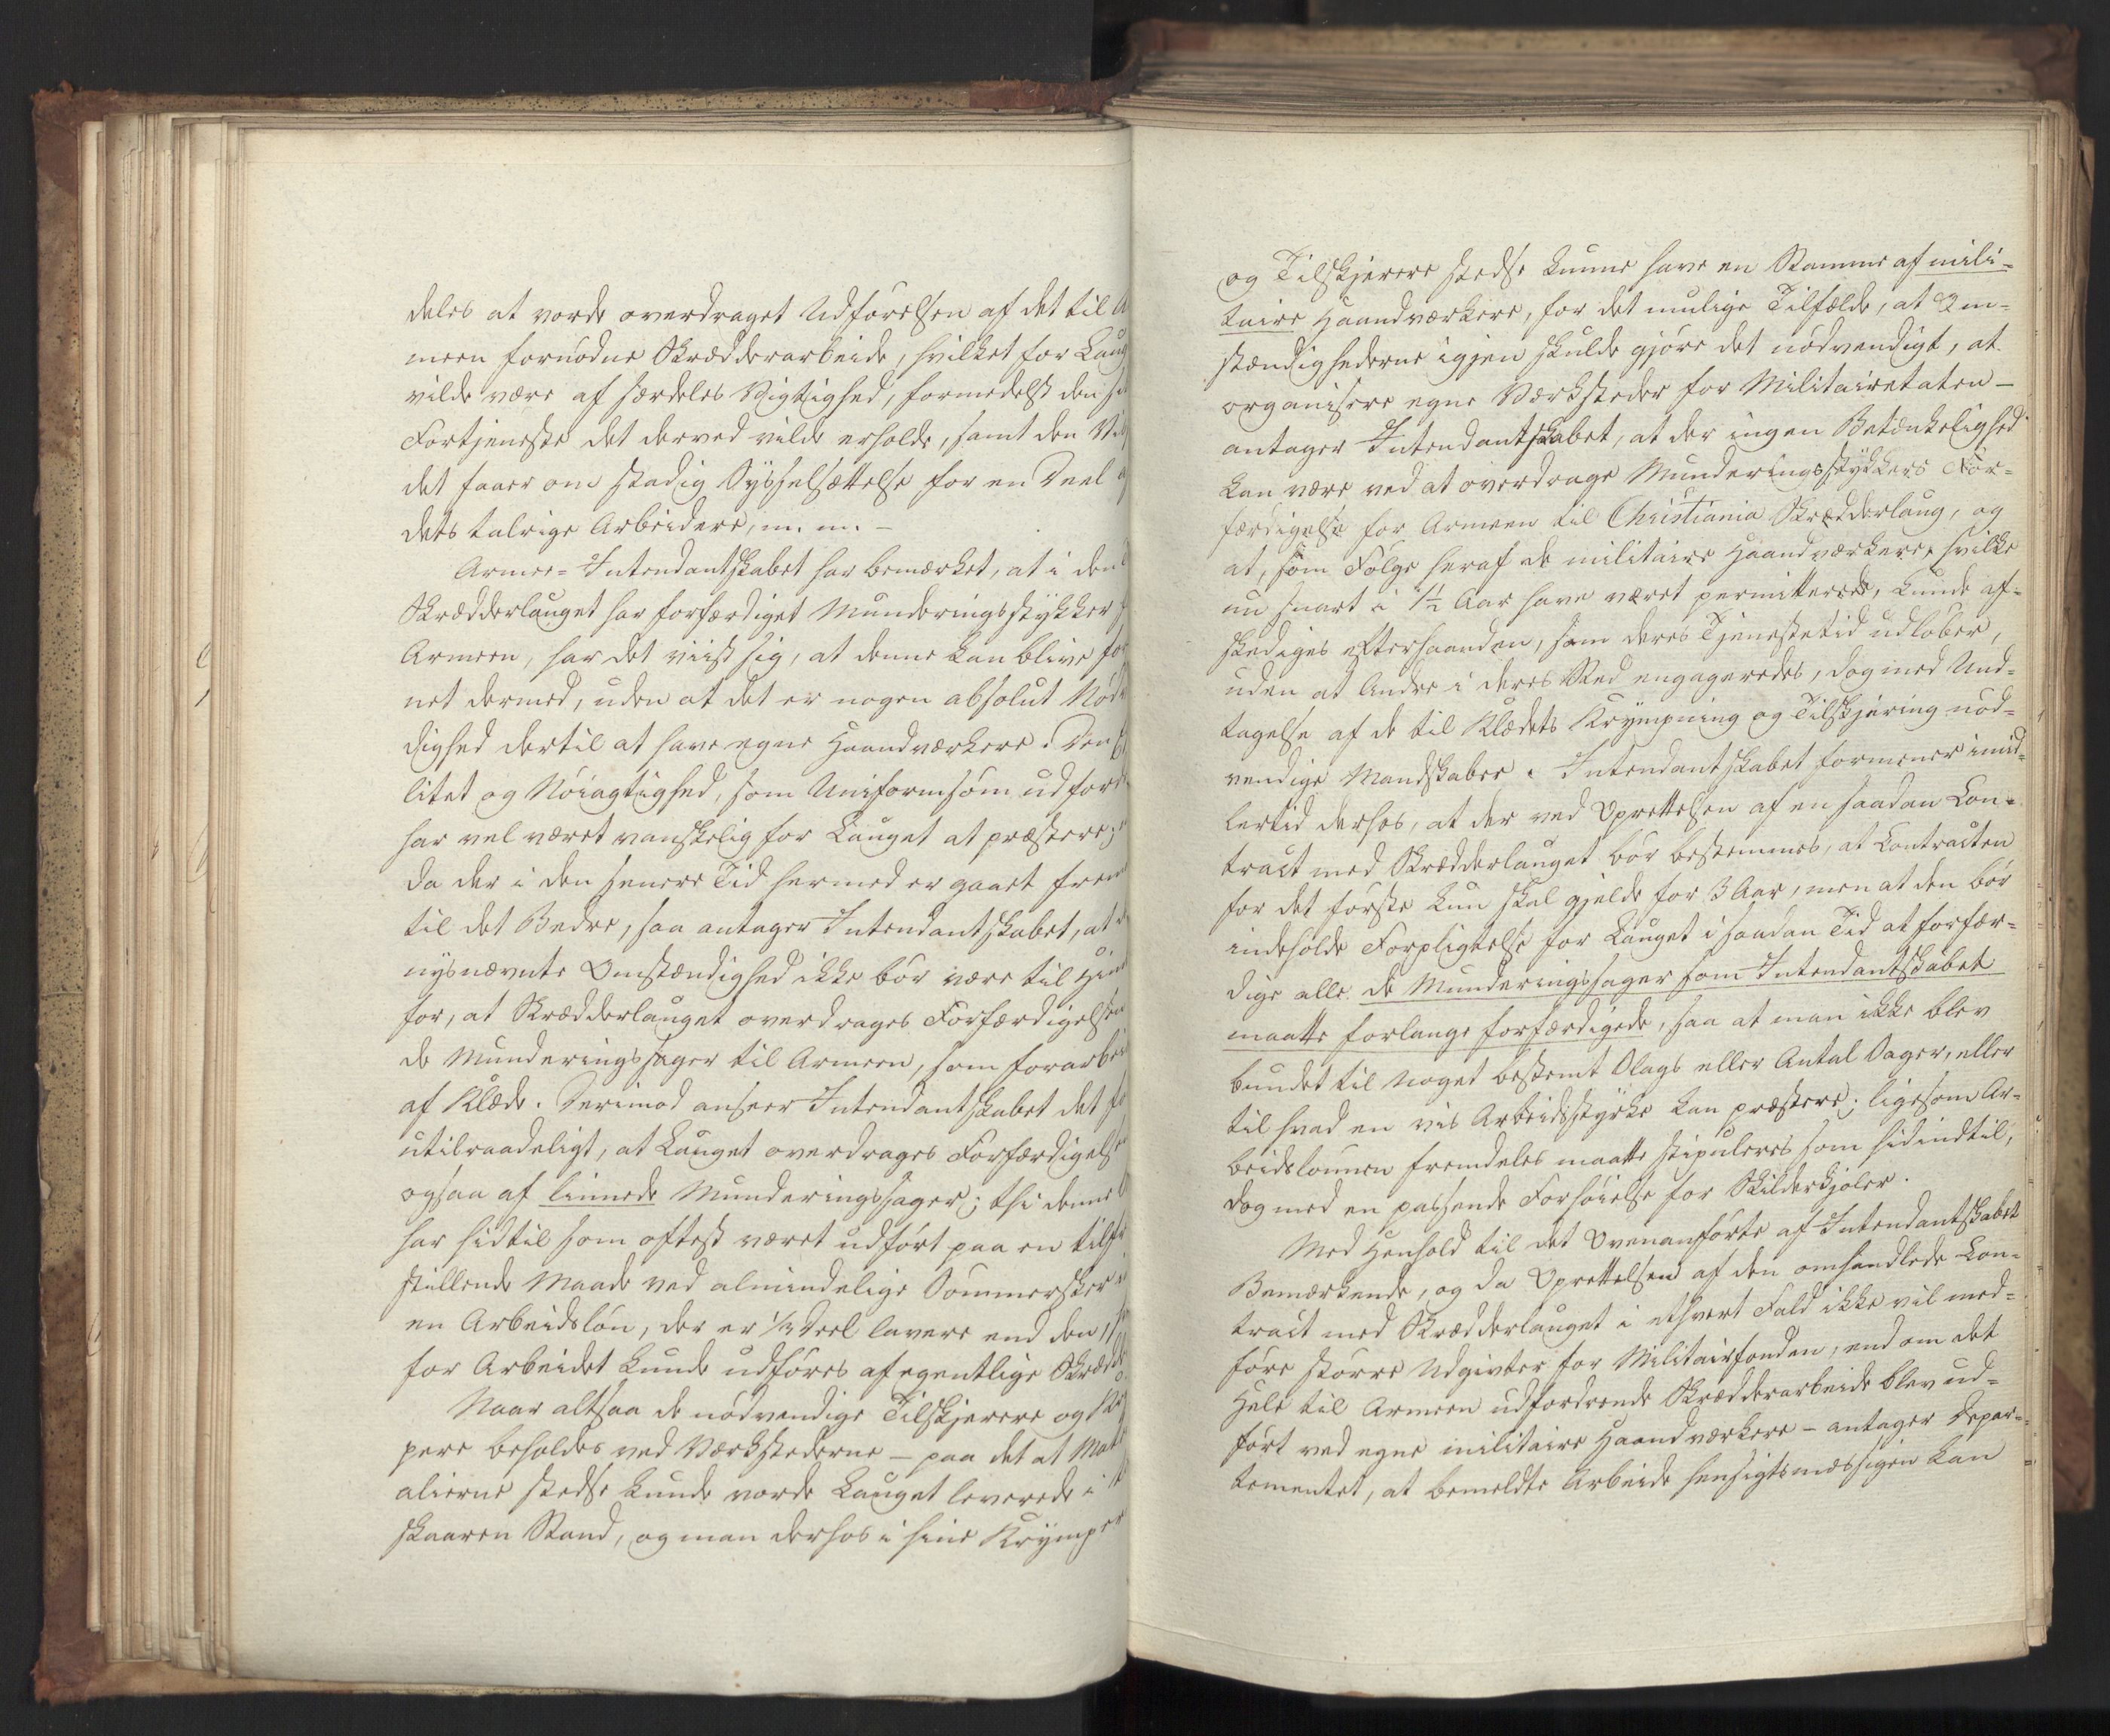 deles at vorde overdraget Udførelsen af det til A
meen fornødne Skrædderarbeide, hvilket for Laug
vilde være af særdeles Vigtighed, formedelst den
Fortjeneste det derved vilde erholde, samt den
det faaer om stadig Sysselsættelse for en Deel
dets talrige Arbeidere, m. m. –
Armee-Intendantskabet har bemærket, at i den
Skrædderlauget har forfærdiget Munderingsstykker
Armeen, har det viist sig, at denne kan blive
net dermed, uden at det er nogen absolut Nød
dighed dertil at have egne Haandværkere. Den
litet og Nøiagtighed, som Uniformsøm udford
har vel været vanskelig for Lauget at præstere;
da der i den senere Tid hermed er gaaet frem
til det Bedre, saa antager Intendantskabet, at
nysnævnte Omstændighed ikke bør være til Hin
for, at Skrædderlauget overdrages Forfærdigelsen
de Munderingssager til Armeen, som forarbei
af Klæde. Derimod anseer Intendantskabet det
utilraadeligt, at Lauget overdrages Forfærdigelse
ogsaa af linnede Munderingssager; thi denne
har hidtil som oftest været udført paa en tilfr
stillende Maade ved almindelige Sømmersker
en Arbeidsløn, der er 1/3 Deel lavere end den,
for Arbeidet kunde udføres af egentlige Skrædde
Naar altsaa de nødvendige Tilskjerere og Kr
pere beholdes ved Værkstederne – paa det at Mate
alierne stedse kunde vorde Lauget leverede i
skaaren Stand, og man derhos i sine Krymper
og Tilskjerere stedse kunne have en Stamme af mili-
taire Haandværkere, for det mulige Tilfælde, at Om-
stændighederne igjen skulde gjøre det nødvendigt, at
organisere egne Værksteder for Militairetaten –
antager Intendantskabet, at der ingen Betænkelighed
kan være ved at overdrage Munderingsstykkers For-
færdigelse for Armeen til Christiania Skrædderlaug, og
at, som Følge heraf de militaire Haandværkere, hvilke
nu snart i 1½ Aar have været permitterede, kunde af-
skediges efterhaanden, som deres Tjenestetid udløber,
uden at Andre i deres Sted engageredes, dog med Und-
tagelse af de til Klædets Krympning og Tilskjering nød-
vendige Mandskaber. Intendantskabet formener imid-
lertid derhos, at der ved Oprettelsen af en saadan Con-
tract med Skrædderlauget bør bestemmes, at Contracten
for det første kun skal gjelde for 3 Aar, men at den bør
indeholde Forpligtelse for Lauget i saadan Tid at forfær-
dige alle de Munderingssager som Intendantskabet
maatte forlange forfærdigede, saa at man ikke blev
bundet til noget bestemt Slags eller Antal Sager, eller
til hvad en vis Arbeidsstyrke kan præstere; ligesom Ar-
beidslønnen fremdeles maatte stipuleres som hidindtil,
dog med en passende Forhøielse for Skilderkjoler.
Med Henhold til det Ovenanførte af Intendantskabet
Bemærkende, og da Oprettelsen af den omhandlede Con-
tract med Skrædderlauget i ethvert Fald ikke vil med-
føre større Udgivter for Militairfonden, end om det
Hele til Armeen udfordrende Skrædderarbeide blev ud-
ført ved egne militaire Haandværkere – antager Depar-
tementet, at bemeldte Arbeide hensigtsmæssigen kan